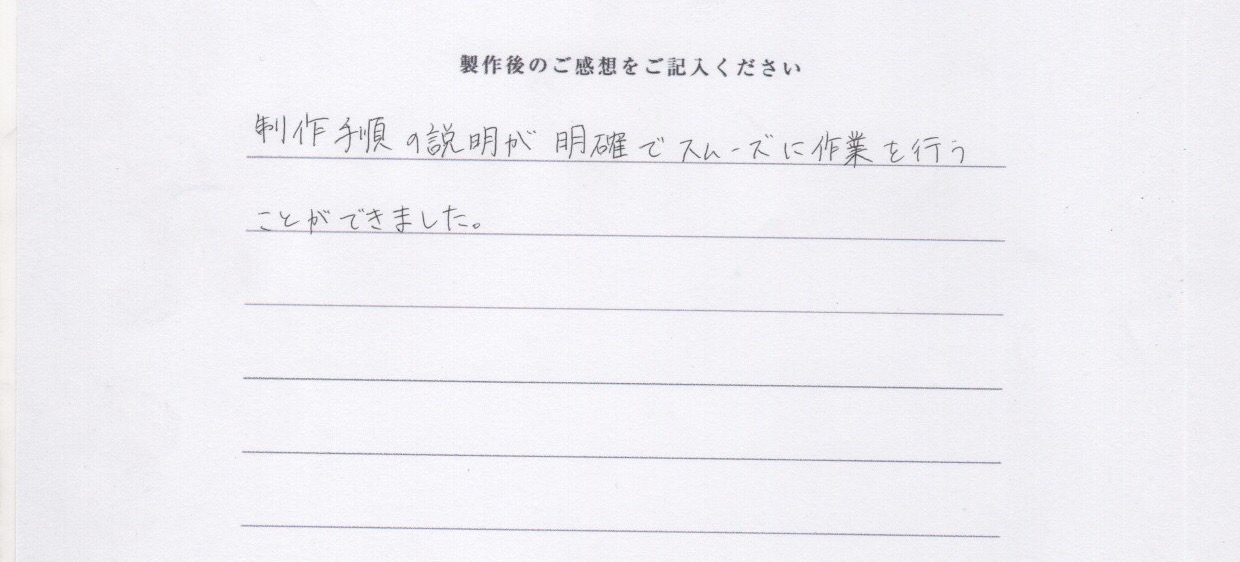 製作後のご感想をご記入ください
制作手順の説明が明確でスムーズに作業を行う
ことができました。